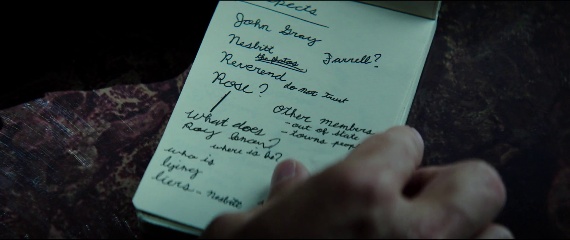 pects
John Gray
Nesbitt Farrell?
Reverend do not trust
Rose?
Other members
What does - out of state
- towns peop
Roxy
where is he?
who is
lying
liers - Nesbitt